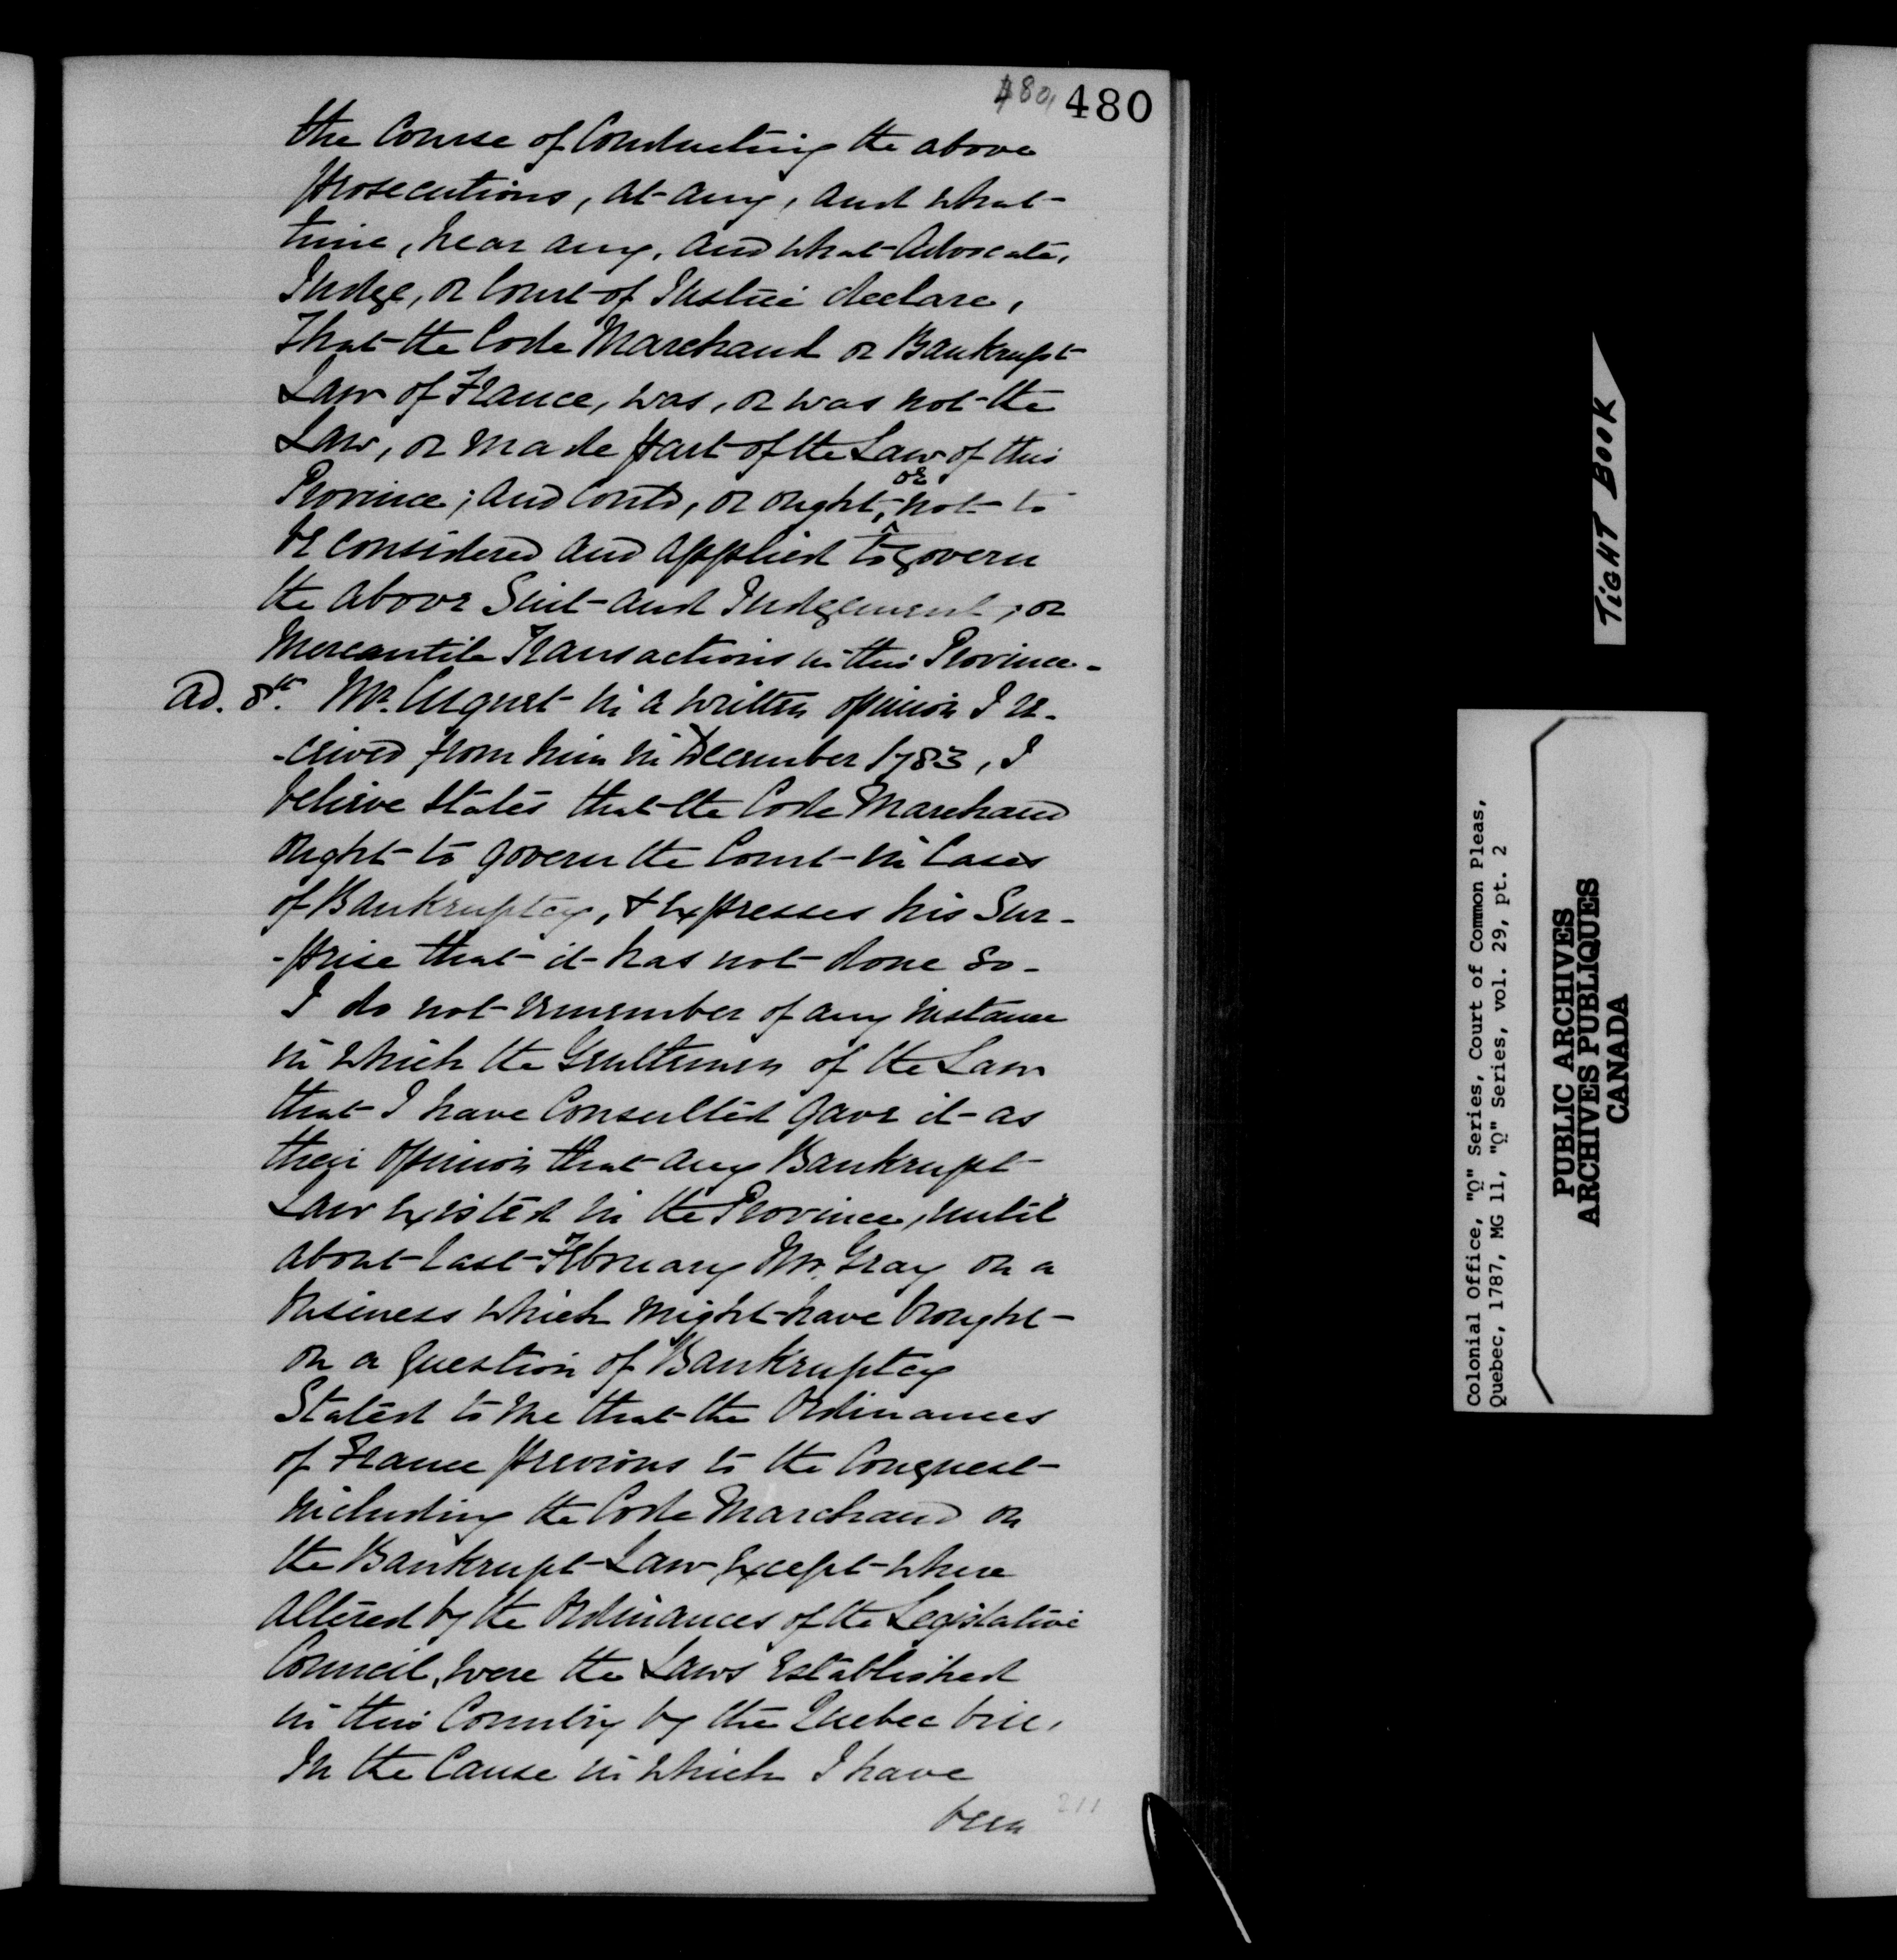 480, 480
the Course of Conducting the above
prosecutions, at any, and what
time, hear any, and what Advocate,
Judge, or Court of Justice declare,
That the Code Marchand or Bankrupt
Law of France, was, or was not the
Law, or made part of the Law of this
Province; and could, or ought, or not to
be considered and applied to govern
the above Suit and Judgement; or
Mercantile Transactions in this Province.
ad. 8th. Mr. Cugnet in a written opinion I re-
-ceived from him in December 1783, I
believe states that the Code Marchand
ought to govern the Court in Cases
of Bankruptcy, & Expresses his Sur-
-prise that it has not done so.
I do not remember of any instance
in which the Gentlemen of the Law
that I have Consulted gave it as
their opinion that any Bankrupt
Law Existed in the Province, until
about last February Mr. Gray on a
business which might have brought
on a question of Bankruptcy
Stated to me that the Ordinances
of France previous to the Conquest
including the Code Marchand or
the Bankrupt Law, Except where
altered by the Ordinances of the Legislative
Council, were the Laws Established
in this Country by the Quebec bill,
In the Cause in which I have
been
211
TIGHT BOOK
Colonial Office, "Q" Series, Court of Common Pleas,
Quebec, 1787, MG 11, "Q" Series, vol. 29, pt. 2
PUBLIC ARCHIVES
ARCHIVES PUBLIQUES
CANADA